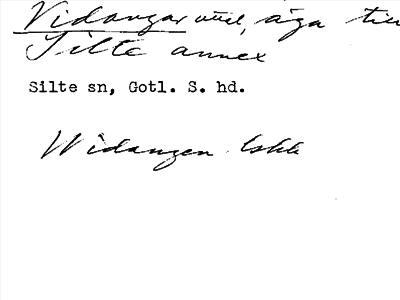 Vidangar utul, äga till
Silte annex
Silte sn, Gotl. S. hd.
Widangen Iskk